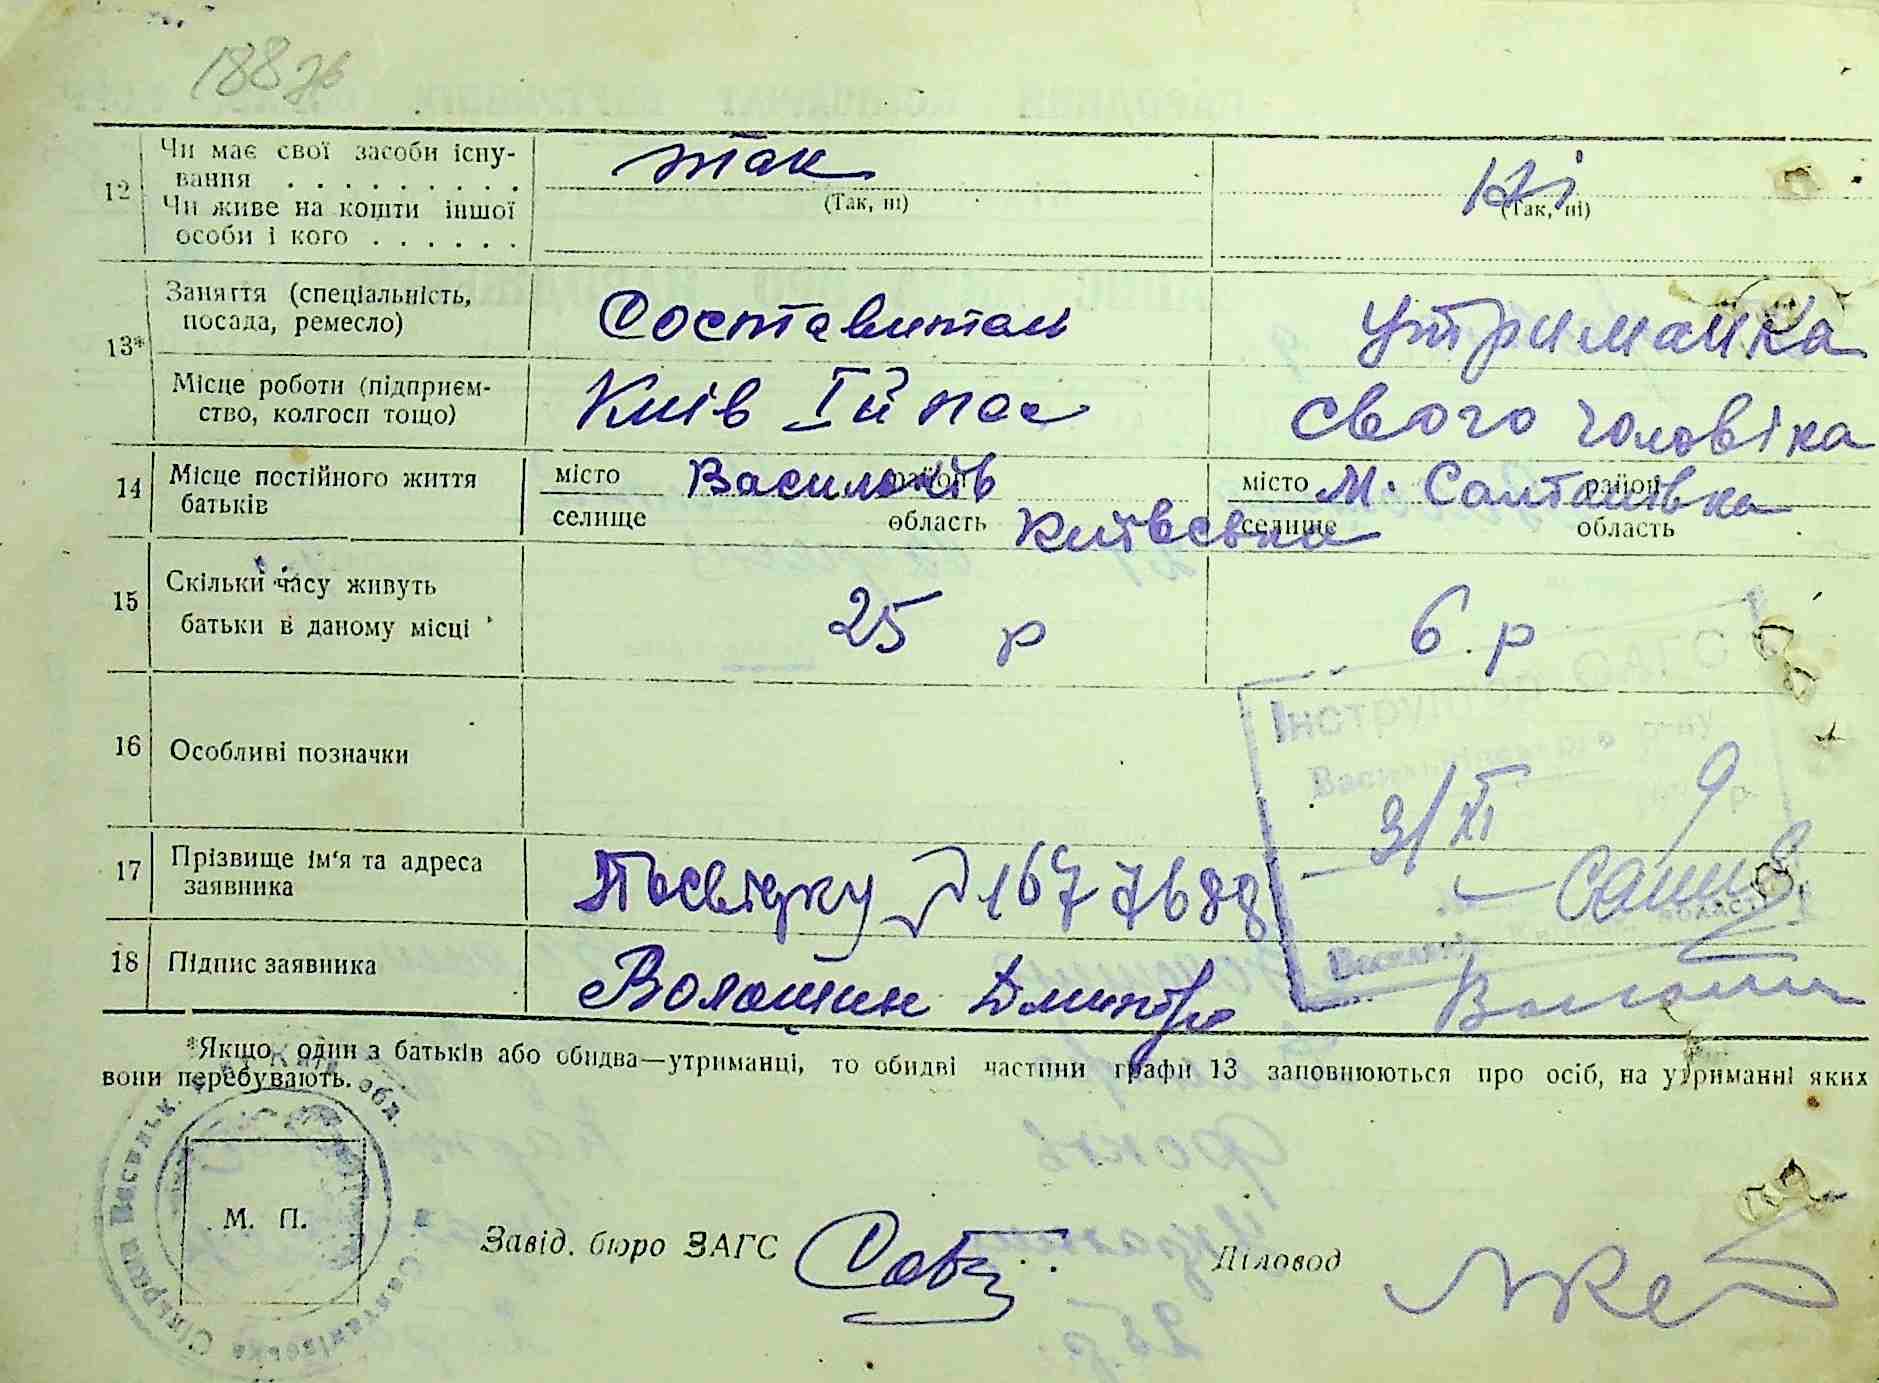 188 зв
12 Чи має свої засоби існу-
вання . . . . . . . . . так ні
(Так, ні) (Так, ні)
Чи живе на кошти іншої
особи і кого . . . . . .
13* Заняття (спеціальність,
посада, ремесло) Составитель Утриманка
Місце роботи (підприєм-
ство, колгосп тощо) Київ Iй пас свого чоловіка
14 Місце постійного життя
батьків
місто Васильків район місто М. Салтанівка район
селище область Київська селище область
15 Скільки часу живуть
батьки в даному місці 25 р 6 р
16 Особливі позначки
Інструктор ОАГС
Васильківського р-ну
3/XI
17 Прізвище ім'я та адреса
заявника Посвідку № 1677688
18 Підпис заявника Волошин Дмитро Волошин
*Якщо один з батьків або обидва—утриманці, то обидві частини графи 13 заповнюються про осіб, на утриманні яких
вони перебувають.
Васильк. Київ. обл.
М. П.
Завід. бюро ЗАГС Діловод